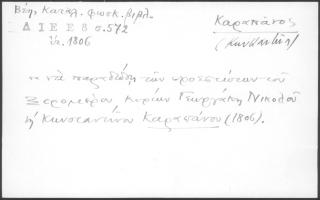 Βέη, Κατάλ. φωσκ. βιβλ.
ΔΙΕΕ 8 σ. 572
1806
Καραπάνος
(Κωνσταντίνος)
" νὰ παραδώσῃ τῶν προεστώτων τοῦ
Ξερομέρου, κυρίων Γεωργάκη Νικολοῦ
ἢ Κωνσταντίνου Καραπάνου (1806).